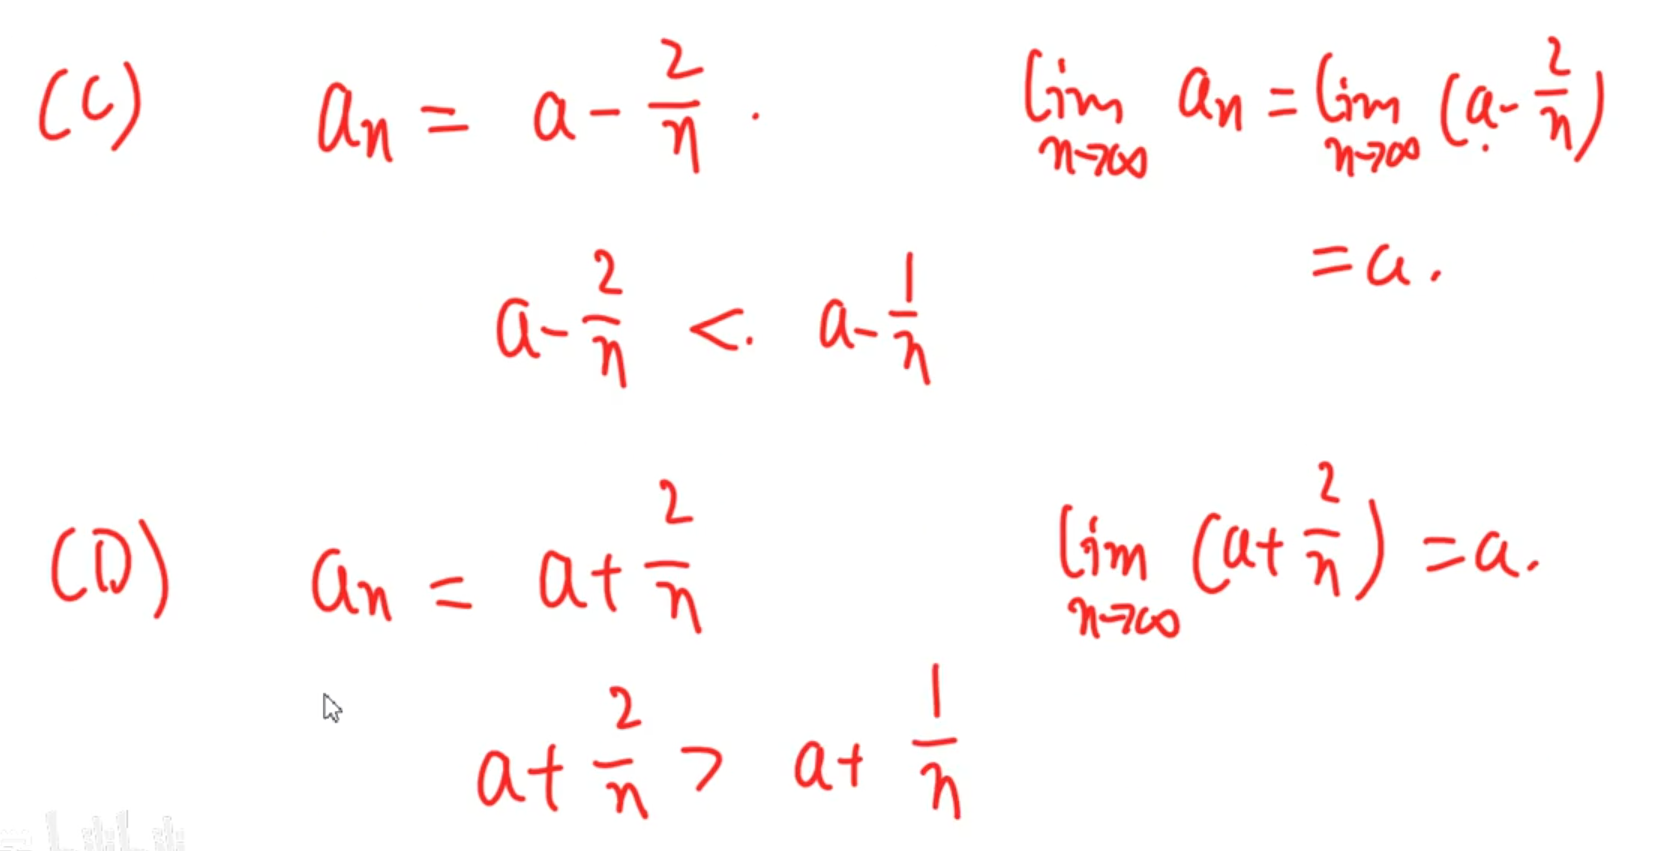 (C) aₙ = a - 2/n . lim_{n→∞} aₙ = lim_{n→∞} (a - 2/n)
= a.
a - 2/n < . a - 1/n
(D) aₙ = a + 2/n lim_{n→∞} (a + 2/n) = a.
a + 2/n > a + 1/n